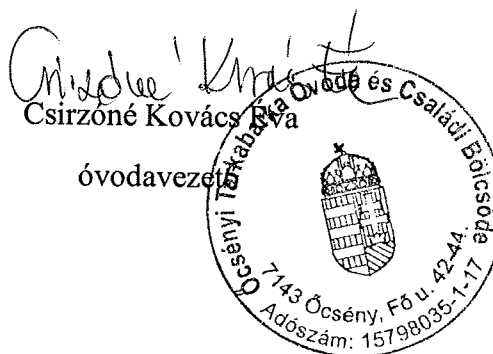 Csirzóné Kovács Éva
óvodavezető
Őcsényi Tarkabarka Óvoda és Családi Bölcsőde
7143 Őcsény, Fő u. 42-44.
Adószám: 15798035-1-17